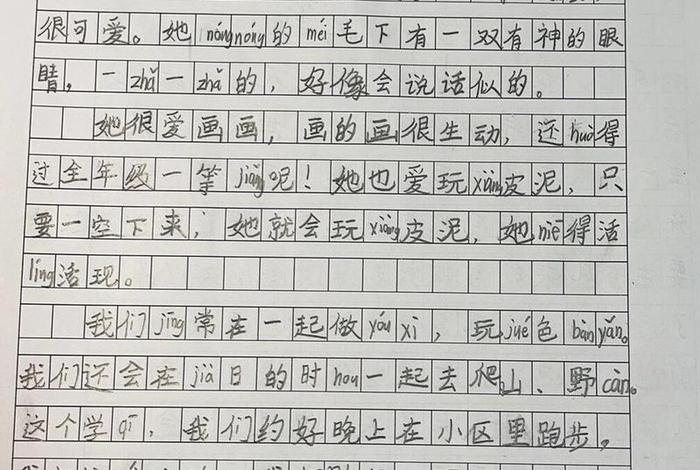 很可爱。她nóngnóng的méi毛下有一双有神的眼
睛，一zhǎ一zhǎ的，好像会说话似的。
她很爱画画，画的画很生动，还huò得
过全年级一等jiǎng呢！她也爱玩xiàng皮泥，只
要一空下来，她就会玩xiàng皮泥，她niē得活
líng活现。
我们jīng常在一起做yóu xì，玩jué色bàn yǎn。
我们还会在jià日的时hou一起去爬山、野cān。
这个学qī，我们约好晚上在小区里跑步。